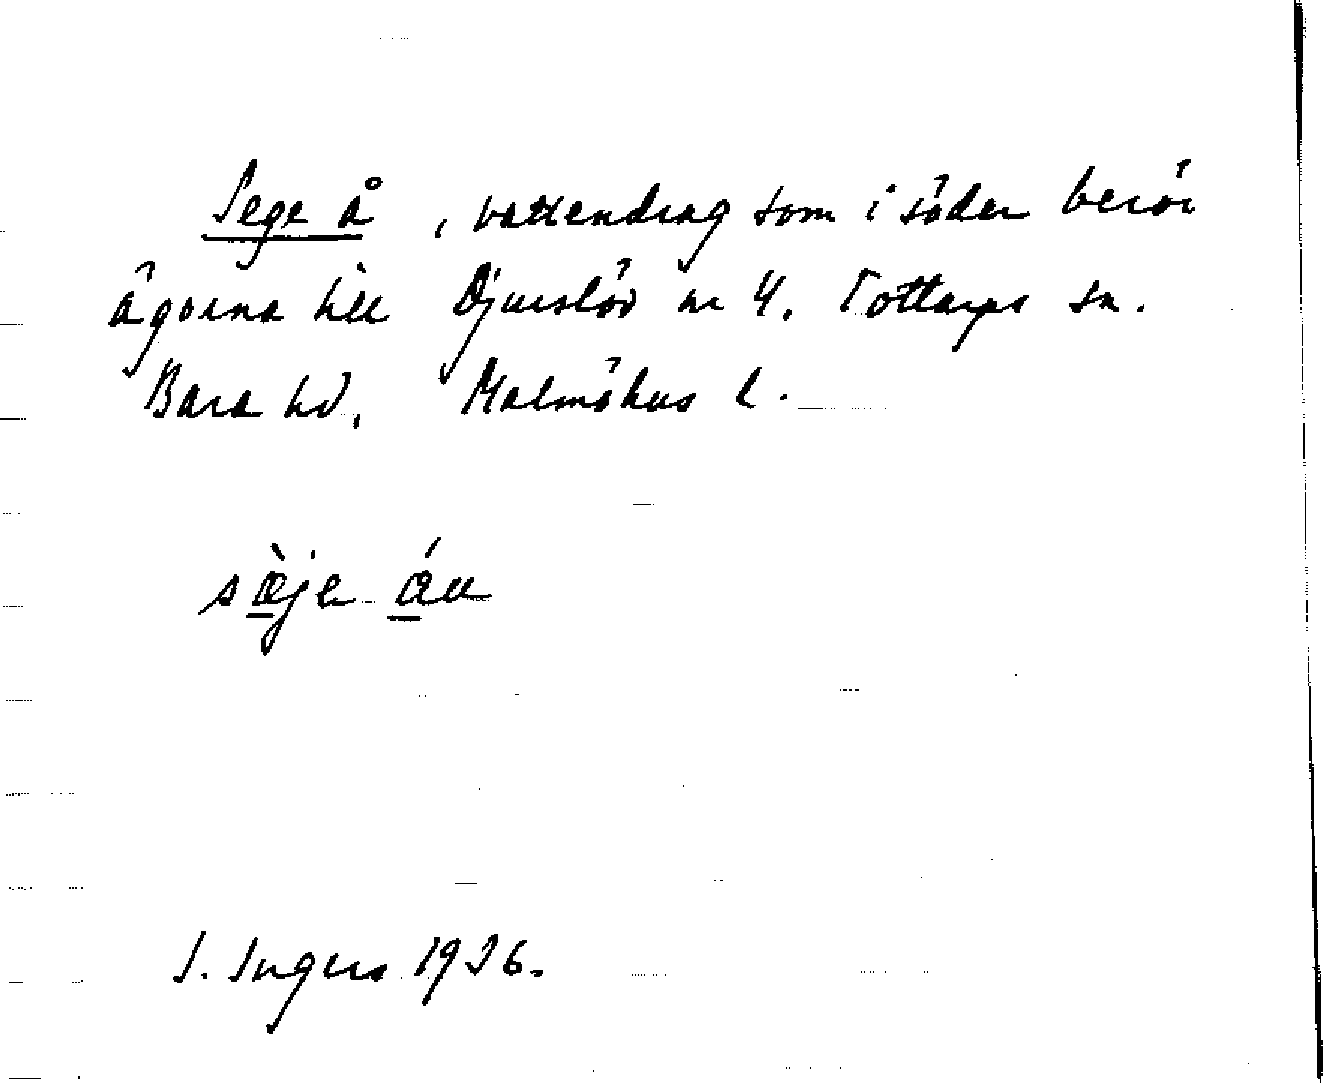 Sege å, vattendrag som i söder berör
ägorna till Djurslöv nr 4. Tottarps sn.
Bara hd, Malmöhus l.
sæ̀je áu
I. Ingers 1926.